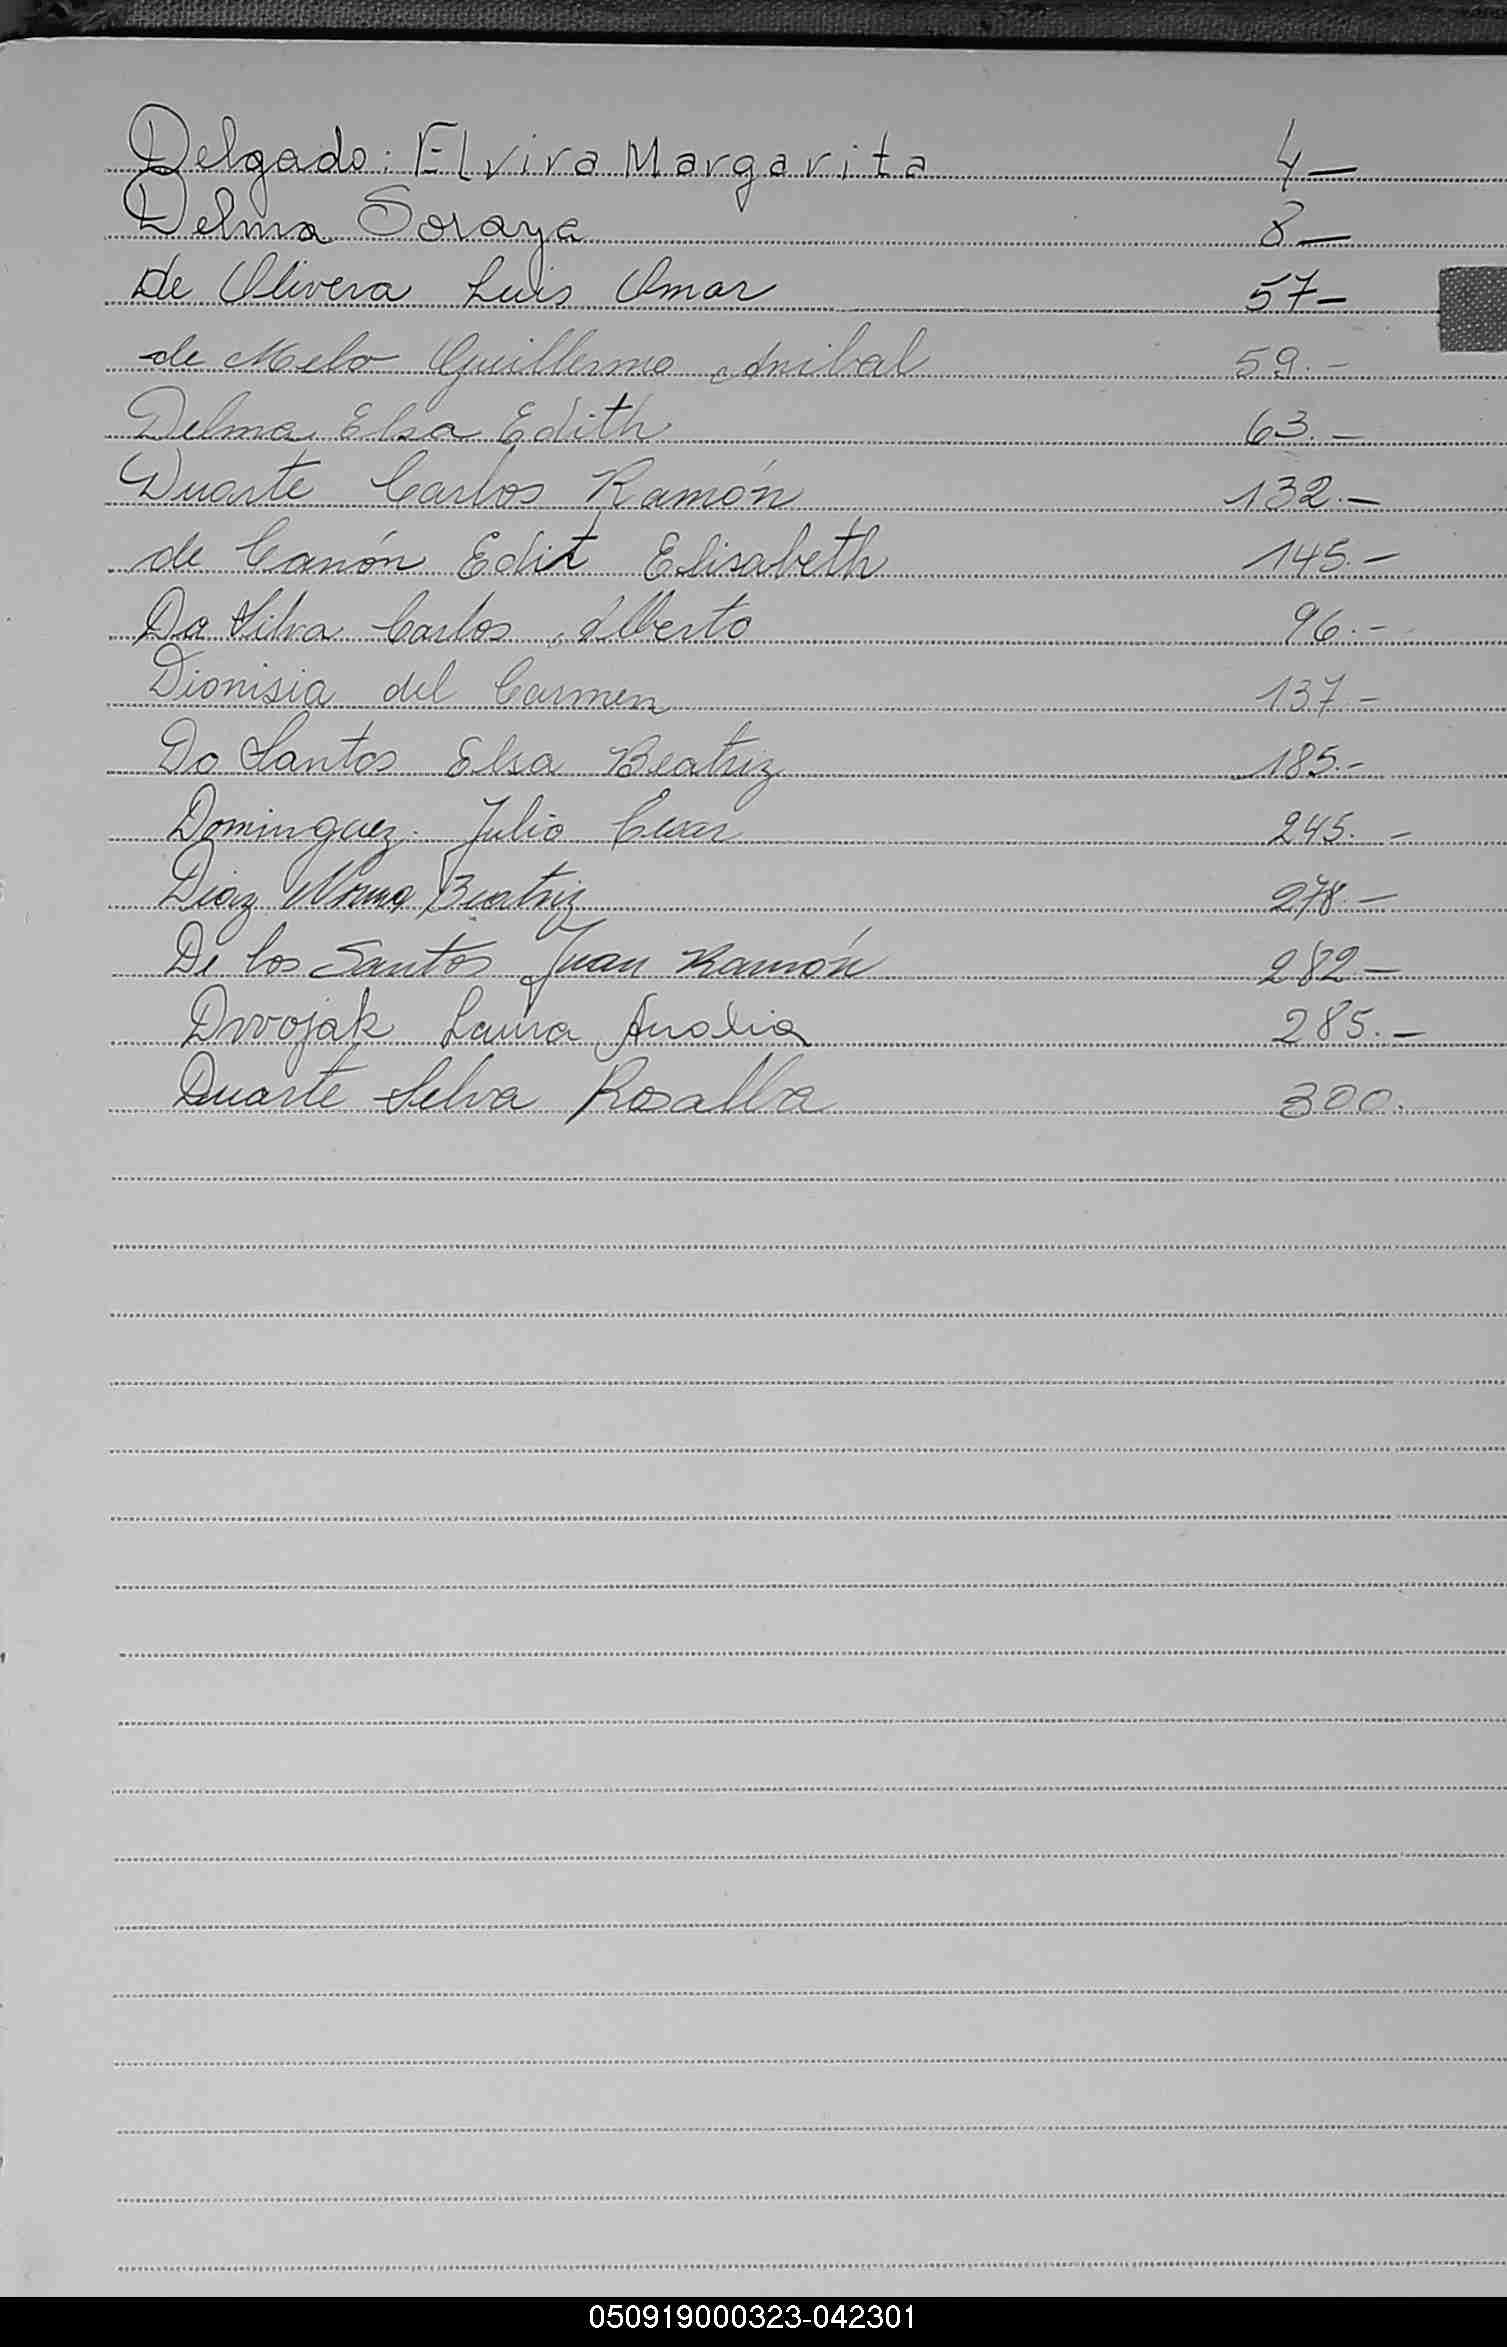 Delgado: Elvira Margarita 4—
Delma Soraya 8—
de Olivera Luis Omar 57—
de Melo Guillermo Anibal 59.-
Delma Elsa Edith 63.-
Duarte Carlos Ramón 132.-
de Canón Edit Elisabeth 145.-
Da Silva Carlos Alberto 96.-
Dionisia del Carmen 137.-
Do Santos Elsa Beatriz 185.-
Dominguez Julio Cesar 245.-
Diaz Norma Beatriz 278.-
De los Santos Juan Ramón 282—
Dvvojak Laura Analia 285.-
Duarte Selva Rosalba 300.
050919000323-042301